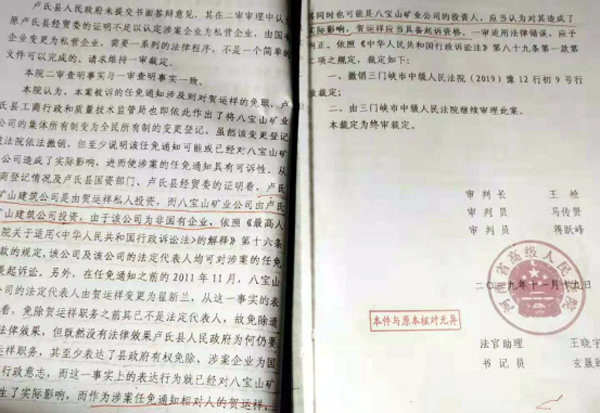 卢氏县人民政府未提交书面答辩意见，其在二审审理中认
原卢氏县经贸委的证明不足以认定涉案企业为私营企业，由国有
企业变更为私营企业，需要一系列的法律程序，不是一个简单的
文件可以完成的。请求维持一审裁定。
本院二审查明事实与一审查明事实一致。
本院认为，本案被诉的任免通知涉及到对贺运祥的免职，卢
氏县工商行政和质量技术监督局也即依此作出了将八宝山矿业
公司的集体所有制变为全民所有制的变更登记，虽然该变更登记
被法院依法撤销，但至少说明该任免通知可能或已经对八宝山矿
公司造成了实际影响，进而使涉案的任免通知具有可诉性。从
商登记情况及卢氏县国资部门、卢氏县经贸委的证明看，卢氏
矿山建筑公司是由贺运祥私人投资，而八宝山矿业公司由卢氏
矿山建筑公司投资，由于该公司为非国有企业，依照《最高人
院关于适用<中华人民共和国行政诉讼法>的解释》第十六条
款的规定，该公司及该公司的法定代表人均可对涉案的任免
提起诉讼。另外，在任免通知之前的2011年11月，八宝山
公司的法定代表人由贺运祥变更为翟新兰，从这一事实的表
看，免除贺运祥职务之前其已不是法定代表人，故免除通
法律效果，但既然没有法律效果卢氏县人民政府为何仍要
运祥职务，其至少表达了县政府有权免除、涉案企业为国
行政意志，而这一事实上的表达行为就已经对八宝山矿
生了实际影响，而作为涉案任免通知相对人的贺运祥，
其同时也可能是八宝山矿业公司的投资人，应当认为对其造成了
实际影响，贺运祥应当具备起诉资格。一审适用法律错误，应予
纠正。依照《中华人民共和国行政诉讼法》第八十九条第一款第
二项之规定，裁定如下：
一、撤销三门峡市中级人民法院（2019）豫12行初9号行
政裁定；
二、由三门峡市中级人民法院继续审理此案。
本裁定为终审裁定。
审 判 长 王 松
审 判 员 马传贤
审 判 员 蒋跃峰
河南省高级人民法院
二〇一九年十一月十九日
本件与原本核对无异
法官助理 王晓宇
书 记 员 玄晟